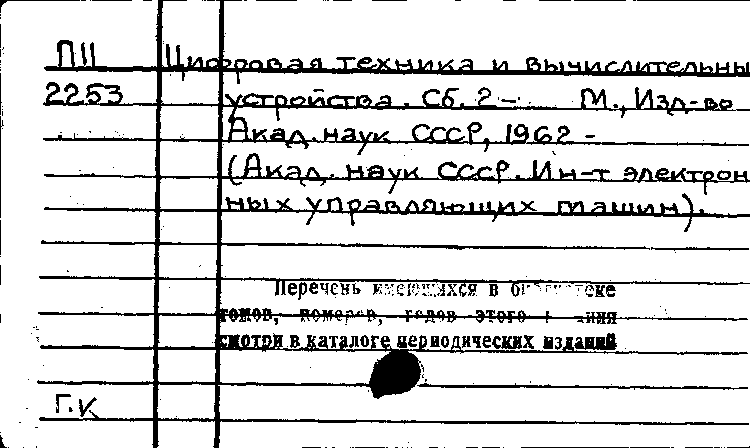 П11 Цифровая техника и вычислительны
2253 устройства. Сб. 2 – М., Изд-во
Акад. наук СССР, 1962 –
(Акад. наук СССР. Ин-т электрон
ных управляющих машин).
Перечень имеющихся в библиотеке
томов, номеров, годов этого
смотри в каталоге периодических изданий
Г.К